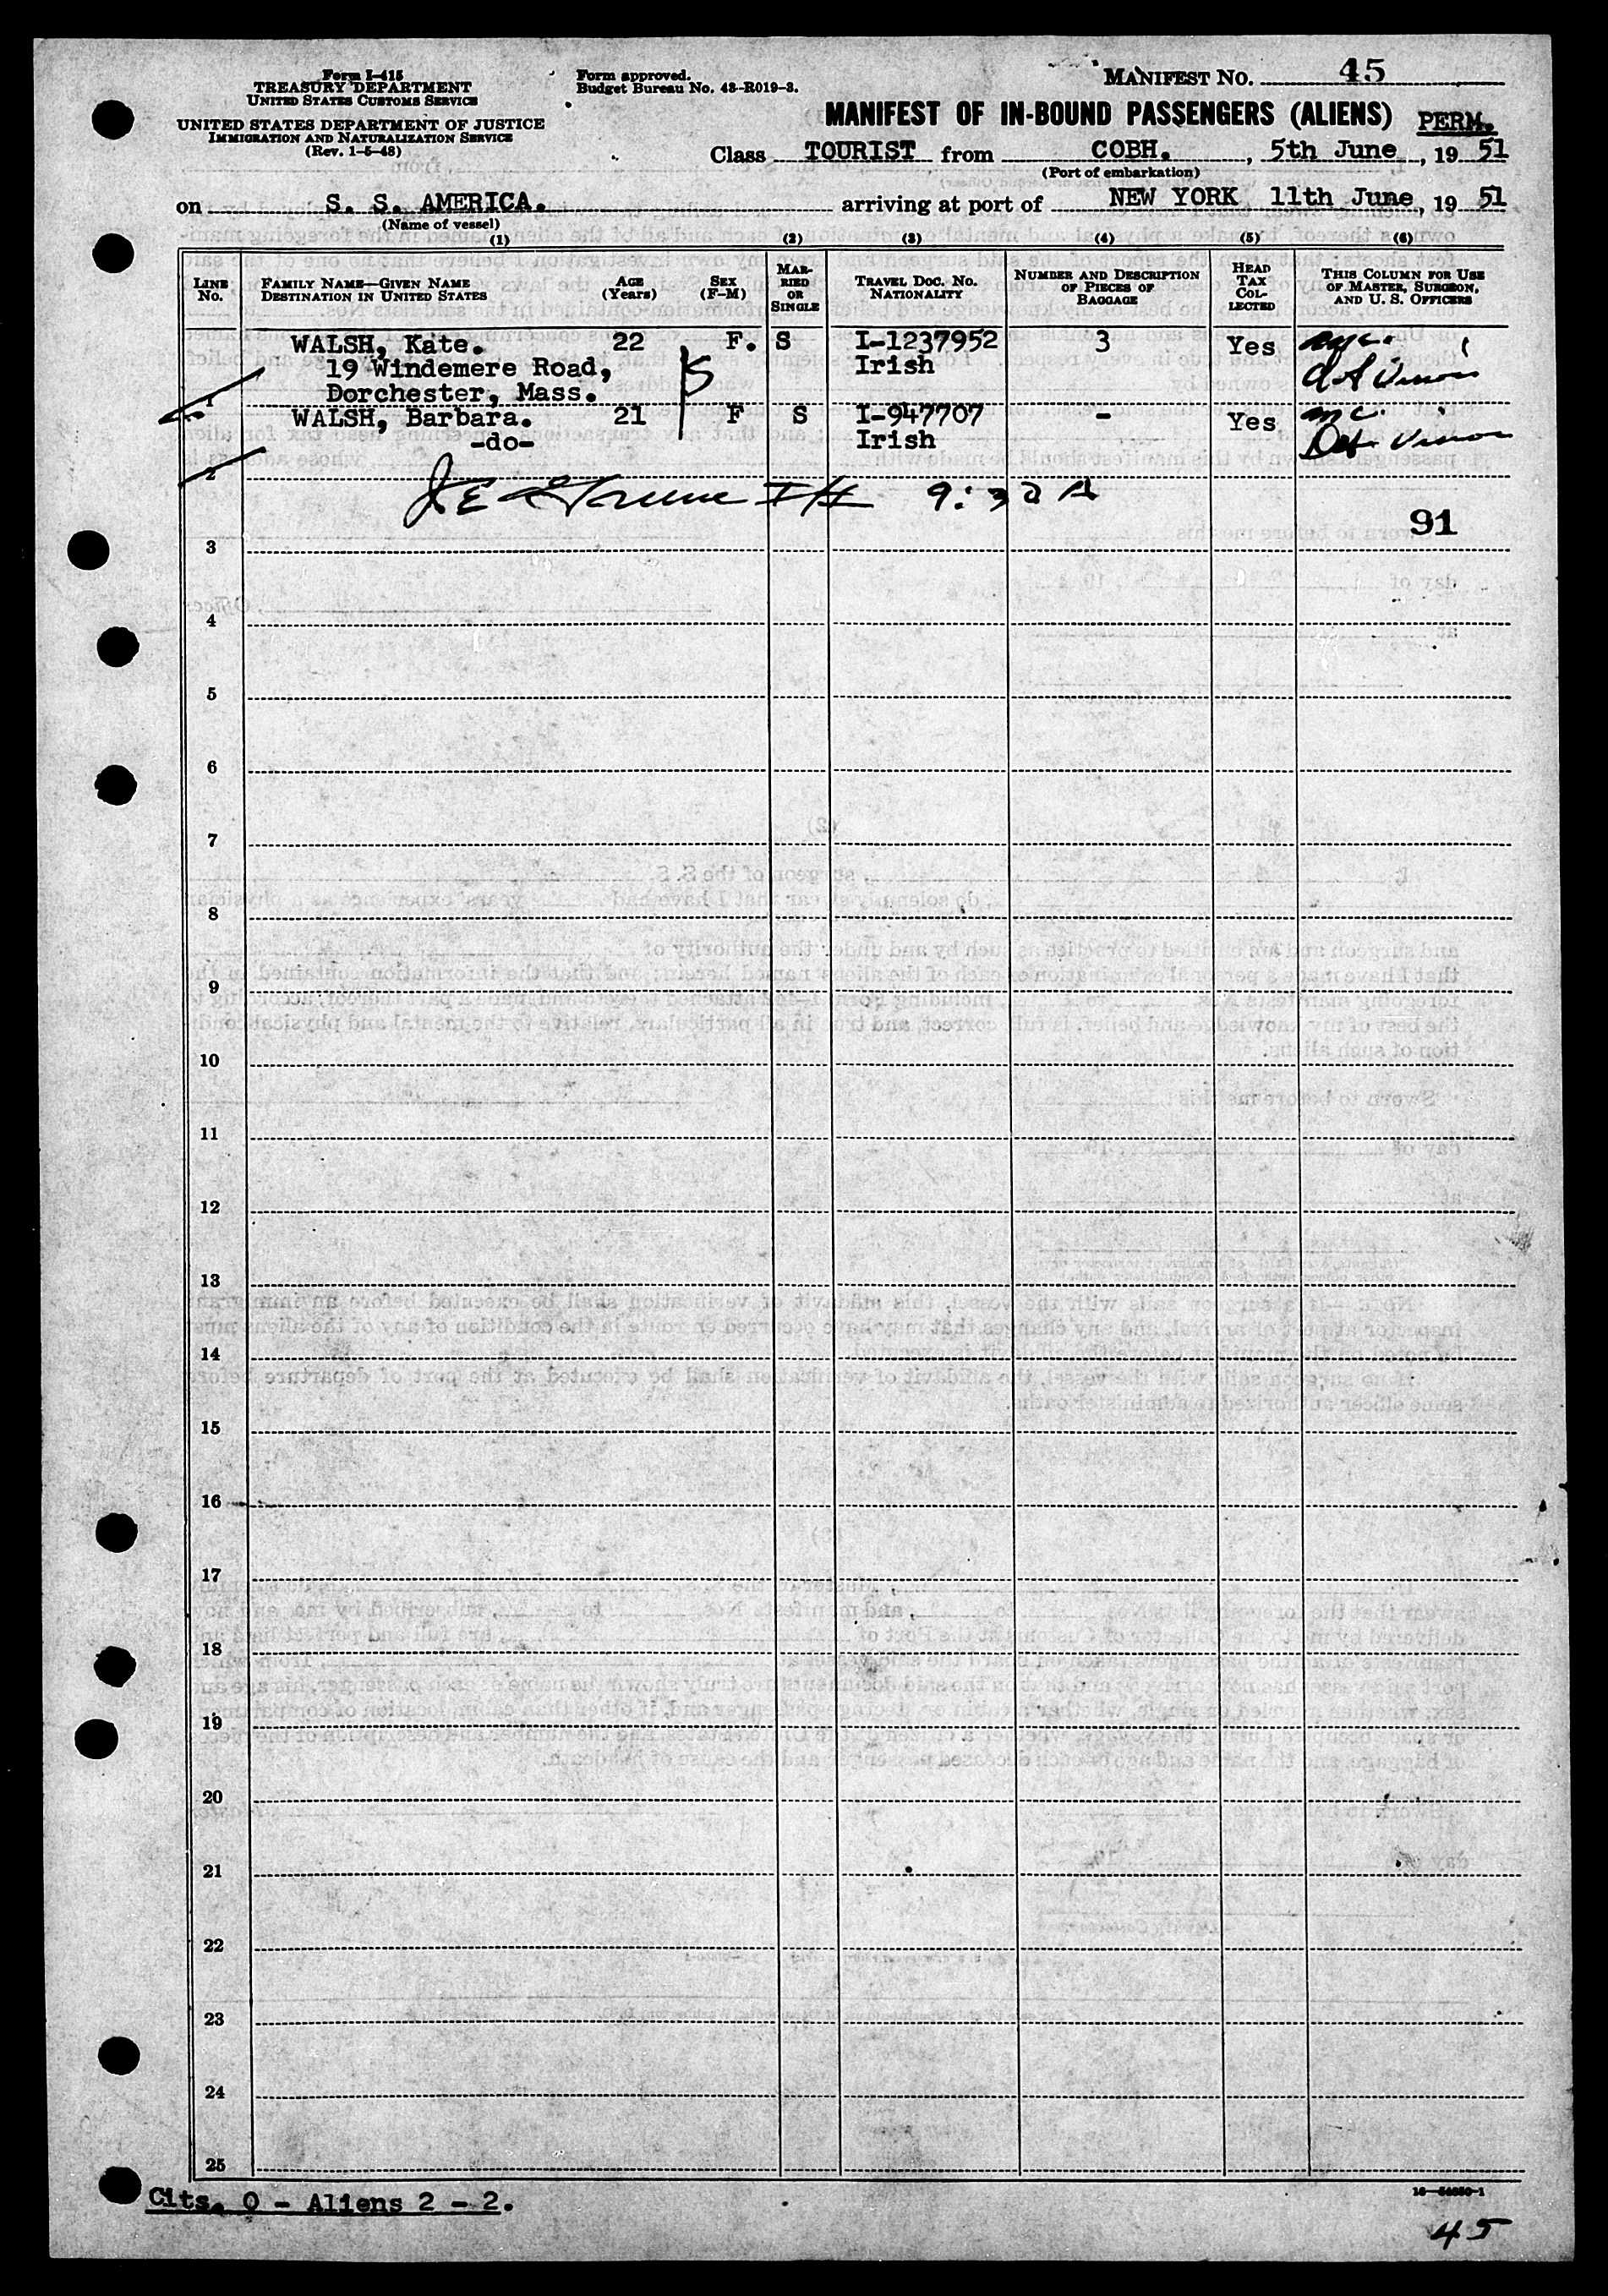 Form I-415
TREASURY DEPARTMENT
UNITED STATES CUSTOMS SERVICE
UNITED STATES DEPARTMENT OF JUSTICE
IMMIGRATION AND NATURALIZATION SERVICE
(Rev. 1-5-48)
Form approved.
Budget Bureau No. 43-R019-3.
MANIFEST NO. 45
MANIFEST OF IN-BOUND PASSENGERS (ALIENS) PERM.
Class TOURIST from COBH. , 5th June , 19 51
(Port of embarkation)
on S. S. AMERICA. arriving at port of NEW YORK 11th June , 19 51
(Name of vessel)
(1) (2) (3) (4) (5) (6)
LINE No.
FAMILY NAME—GIVEN NAME
DESTINATION IN UNITED STATES
AGE (Years)
SEX (F-M)
MARRIED OR SINGLE
TRAVEL DOC. NO.
NATIONALITY
NUMBER AND DESCRIPTION OF PIECES OF BAGGAGE
HEAD TAX COLLECTED
THIS COLUMN FOR USE OF MASTER, SURGEON, AND U. S. OFFICERS
WALSH, Kate. 22 F. S I-1237952 3 Yes
19 Windemere Road, Irish
Dorchester, Mass.
1
WALSH, Barbara. 21 F S I-947707 - Yes
-do- Irish
2
9:30 A
91
3
4
5
6
7
8
9
10
11
12
13
14
15
16
17
18
19
20
21
22
23
24
25
Cits. 0 - Aliens 2 - 2.
45